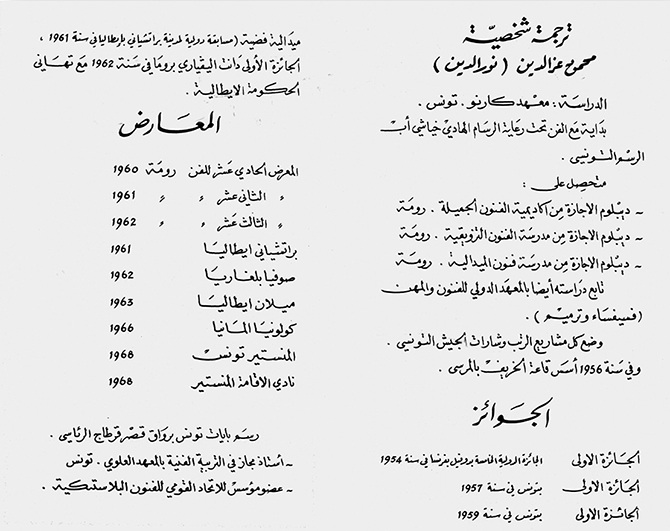 ترجمة شخصيّة
محمود عزالدين (نورالدين)
الدراسة : معهد كارنو . تونس .
بداية مع الفن تحت رعاية الرسام الهادي خياشي أب
الرسم التونسي .
متحصل على :
~ ديبلوم الاجازة من اكاديمية الفنون الجميلة . رومة
~ ديبلوم الاجازة من مدرسة الفنون التزويقية . رومة
~ ديبلوم الاجازة من مدرسة فنون الميدالية . رومة
تابع دراسته أيضا بالمعهد الدولي للفنون والمهن
(فسيفساء وترميم) .
وضع كل مشاريع الرتب وشارات الجيش التونسي .
وفي سنة 1956 أسس قاعة الخريف بالمرسى .
الجوائز
الجائزة الاولى الجائزة الدولية الخامسة بفرنسا في سنة 1954
الجائزة الاولى بتونس في سنة 1957
الجائزة الاولى بتونس في سنة 1959
ميدالية فضية (مسابقة دولية لمدينة براتشياني بإيطاليا في سنة 1961 ،
الجائزة الأولى ذات اليڤياري بروما في سنة 1962 مع تهاني
الحكومة الايطالية .
المعارض
المعرض الحادي عشر للفن رومة 1960
〃 الثاني عشر 〃 〃 1961
〃 الثالث عشر 〃 〃 1962
براتشياني ايطاليا 1961
صوفيا بلغاريا 1962
ميلان ايطاليا 1963
كولونيا المانيا 1966
المنستير تونس 1968
نادي الاقامة المنستير 1968
رسم بايات تونس برواق قصر قرطاج الرئاسي .
~ أستاذ مجاز في التربية الفنية بالمعهد العلوي . تونس
~ عضو مؤسس للاتحاد القومي للفنون البلاستيكية .